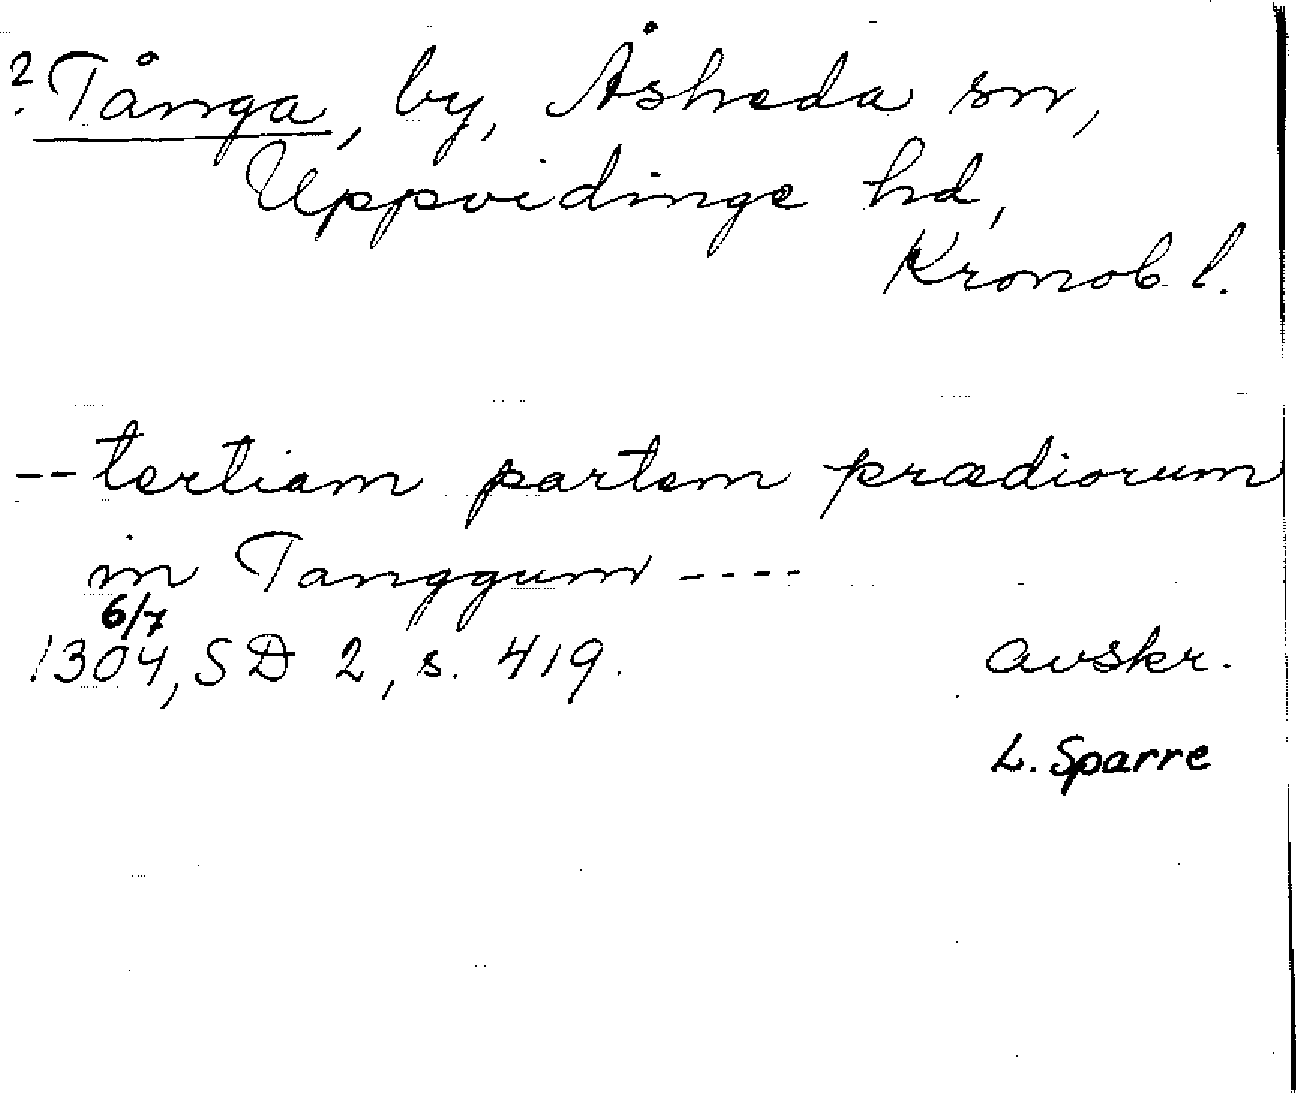 ? Tånga, by, Åsheda sn,
Uppvidinge hd,
Kronob l.
-- tertiam partem prædiorum
in Tanggum ----
6/7
1304, SD 2, s. 419. avskr.
L. Sparre